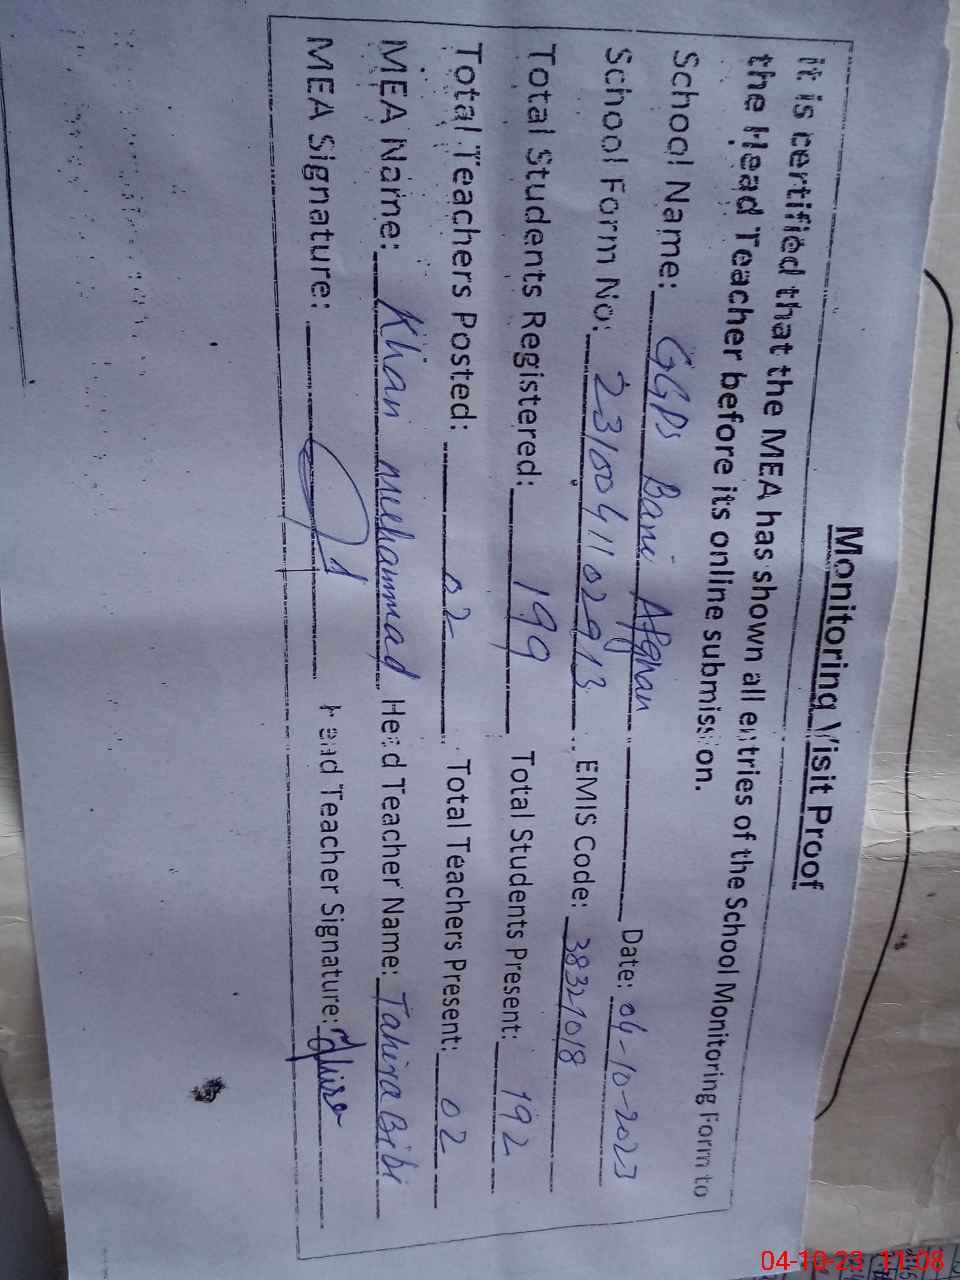 Monitoring Visit Proof
it is certified that the MEA has shown all entries of the School Monitoring Form to
the Head Teacher before its online submission.
School Name: GGPS Bani Afghan Date: 04-10-2023
School Form No: 2310041102913 EMIS Code: 38321018
Total Students Registered: 199 Total Students Present: 192
Total Teachers Posted: 02 Total Teachers Present: 02
MEA Name: Khan muhammad Head Teacher Name: Tahira Bibi
MEA Signature: Head Teacher Signature: Tahira
04-10-23 11:08